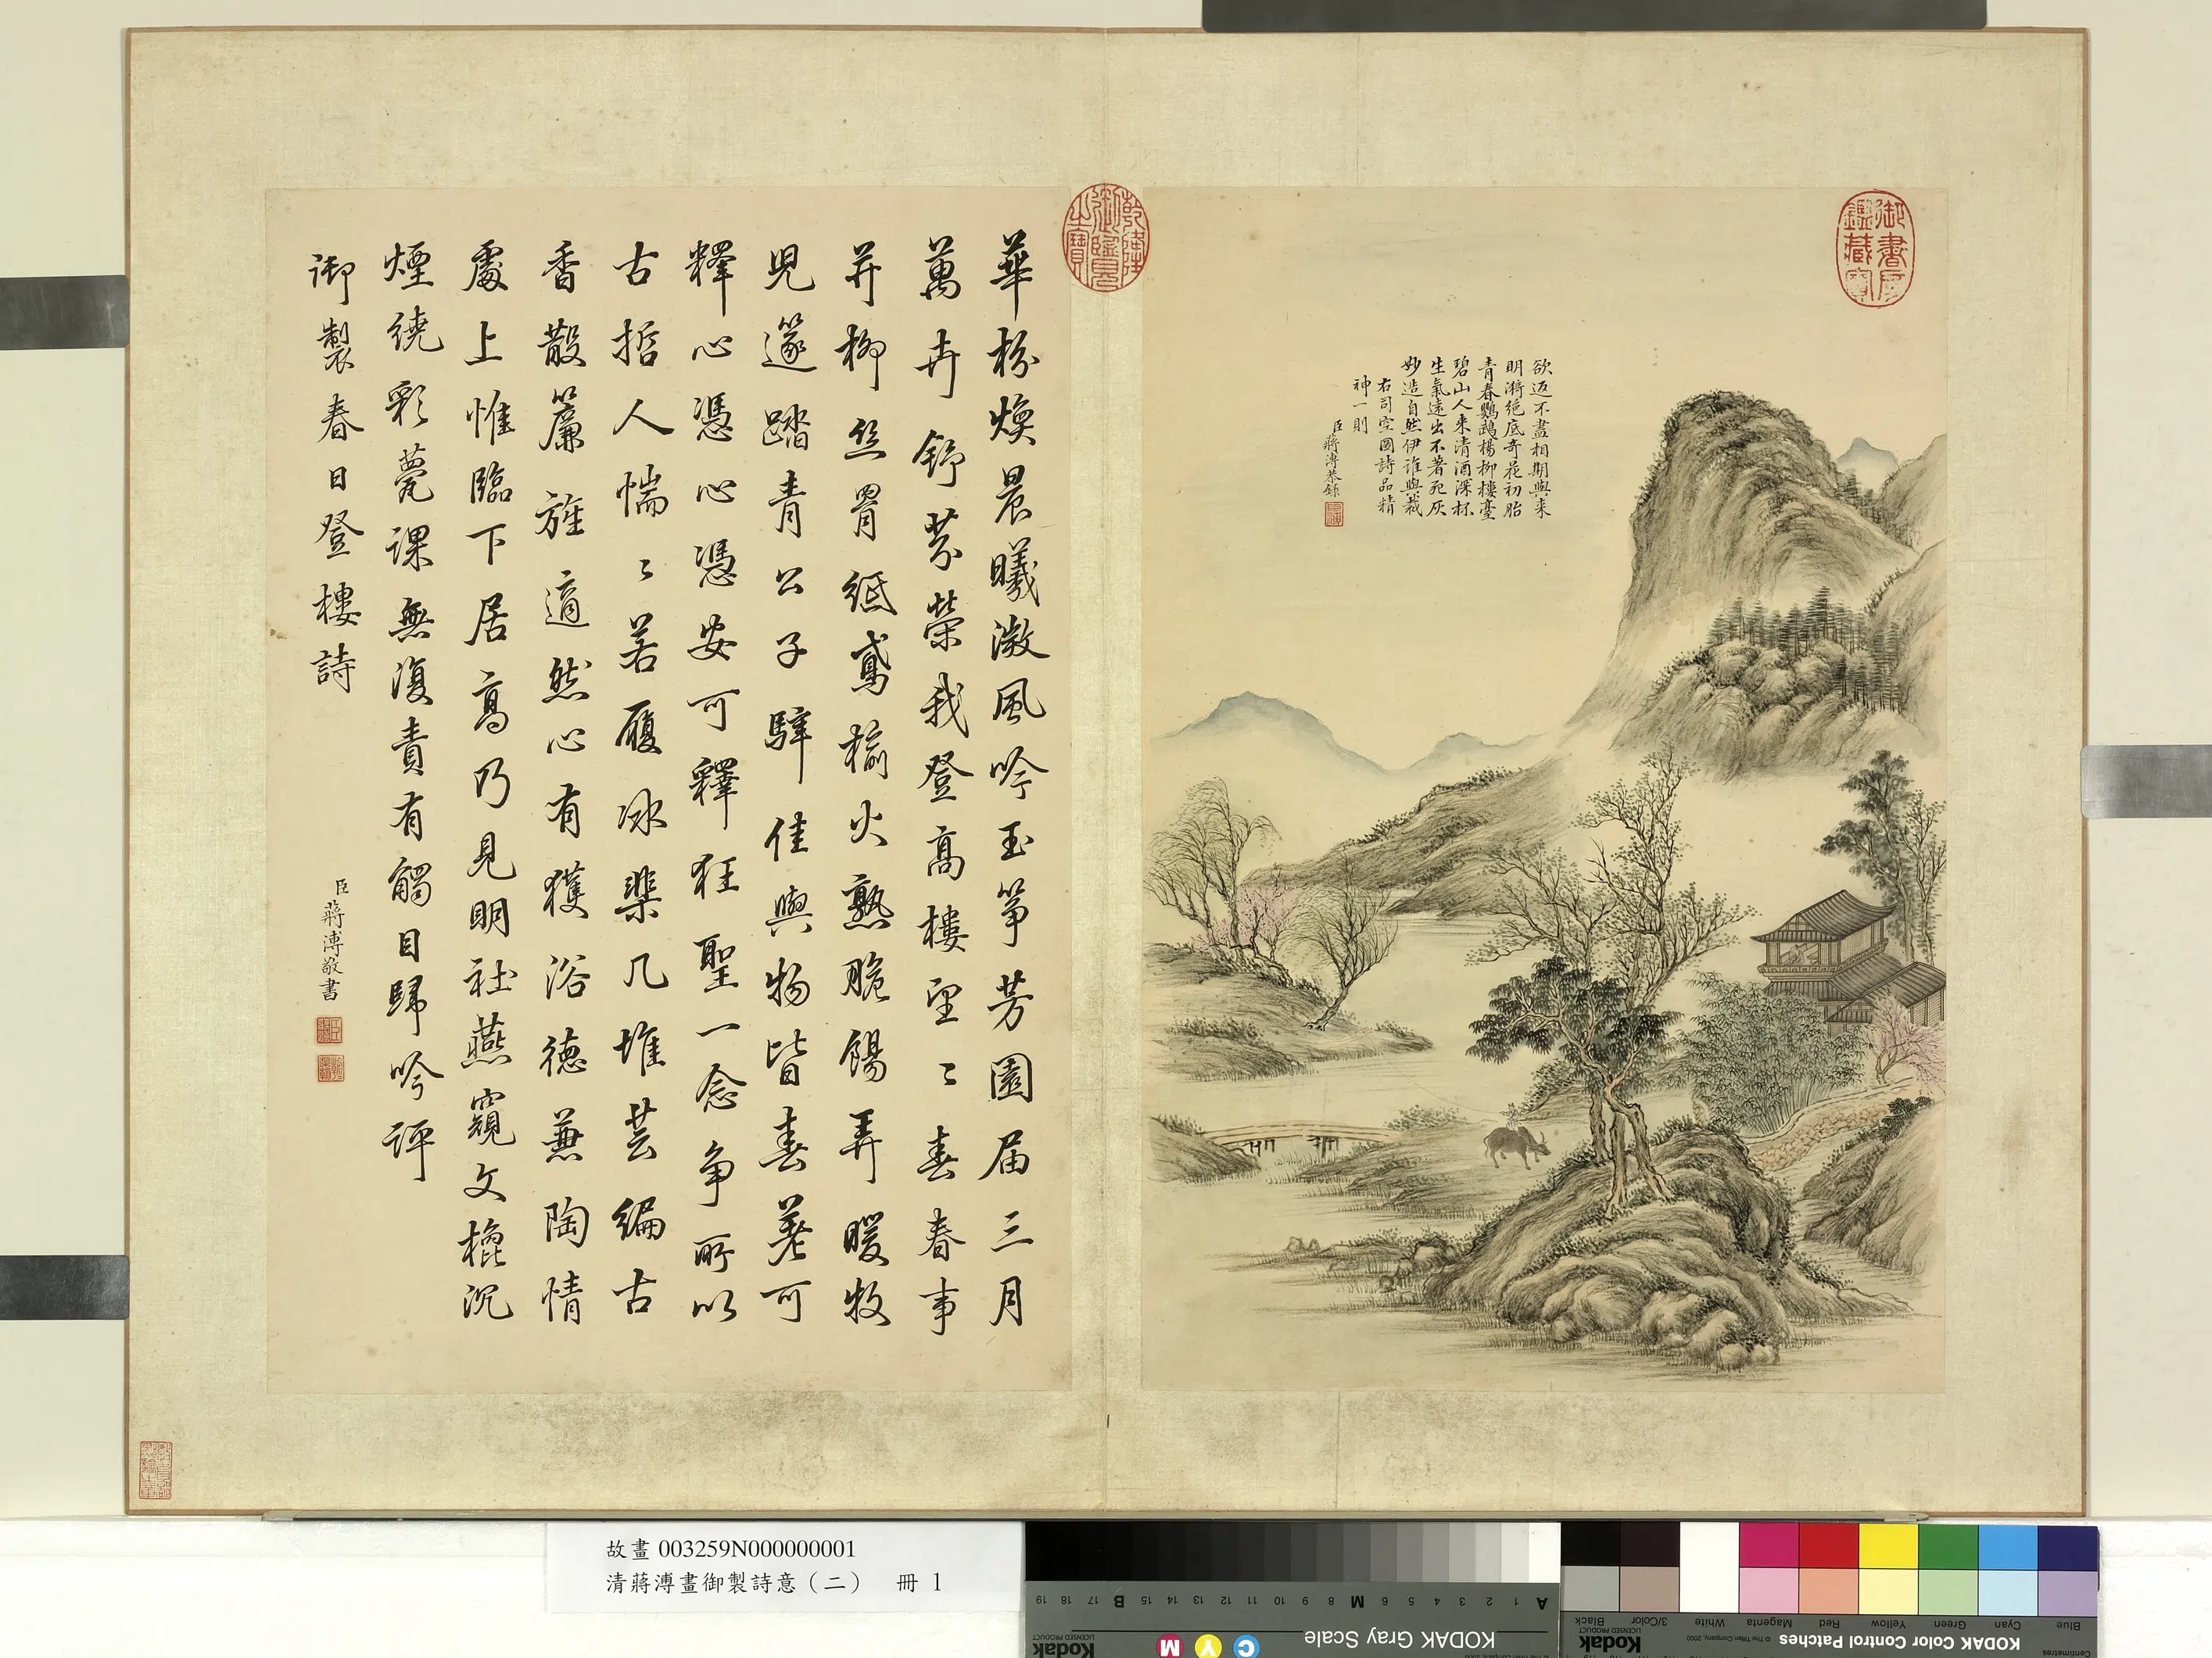 欲返不盡相期與來
明漪絕底奇花初胎
青春鸚鵡楊柳樓臺
碧山人來清酒深杯
生氣遠出不著死灰
妙造自然伊誰與裁
右司空圖詩品精
神一則
臣蔣溥恭錄
御書房鑑藏寶
乾隆御覽之寶
華枌煥晨曦激風吟玉箏芳園届三月
萬卉舒芬榮我登高樓望〻春春事
并柳丝罥紙鳶榆火熟脆餳弄暖牧
兒邃踏青公子騂佳與物皆春春可
釋心憑心憑安可釋狂聖一念争所以
古哲人惴〻若履冰棐几堆芸編古
香散簾旌適然心有獲浴德兼陶情
處上惟臨下居高乃見明社燕窺文棍沉
煙繞彩甍課無復責有觸目歸吟評
御製春日登樓詩
臣蔣溥敬書
故畫 003259N000000001
清蔣溥畫御製詩意（二） 冊 1
KODAK Gray Scale
Kodak
LICENSED PRODUCT
A 1 2 3 4 5 6 M 8 9 10 11 12 13 14 15 B 17 18 19
C Y M
KODAK Color Control Patches
Kodak
LICENSED PRODUCT
© The Tiffen Company, 2000
Centimetres
Blue Cyan Green Yellow Red Magenta White 3/Color Black